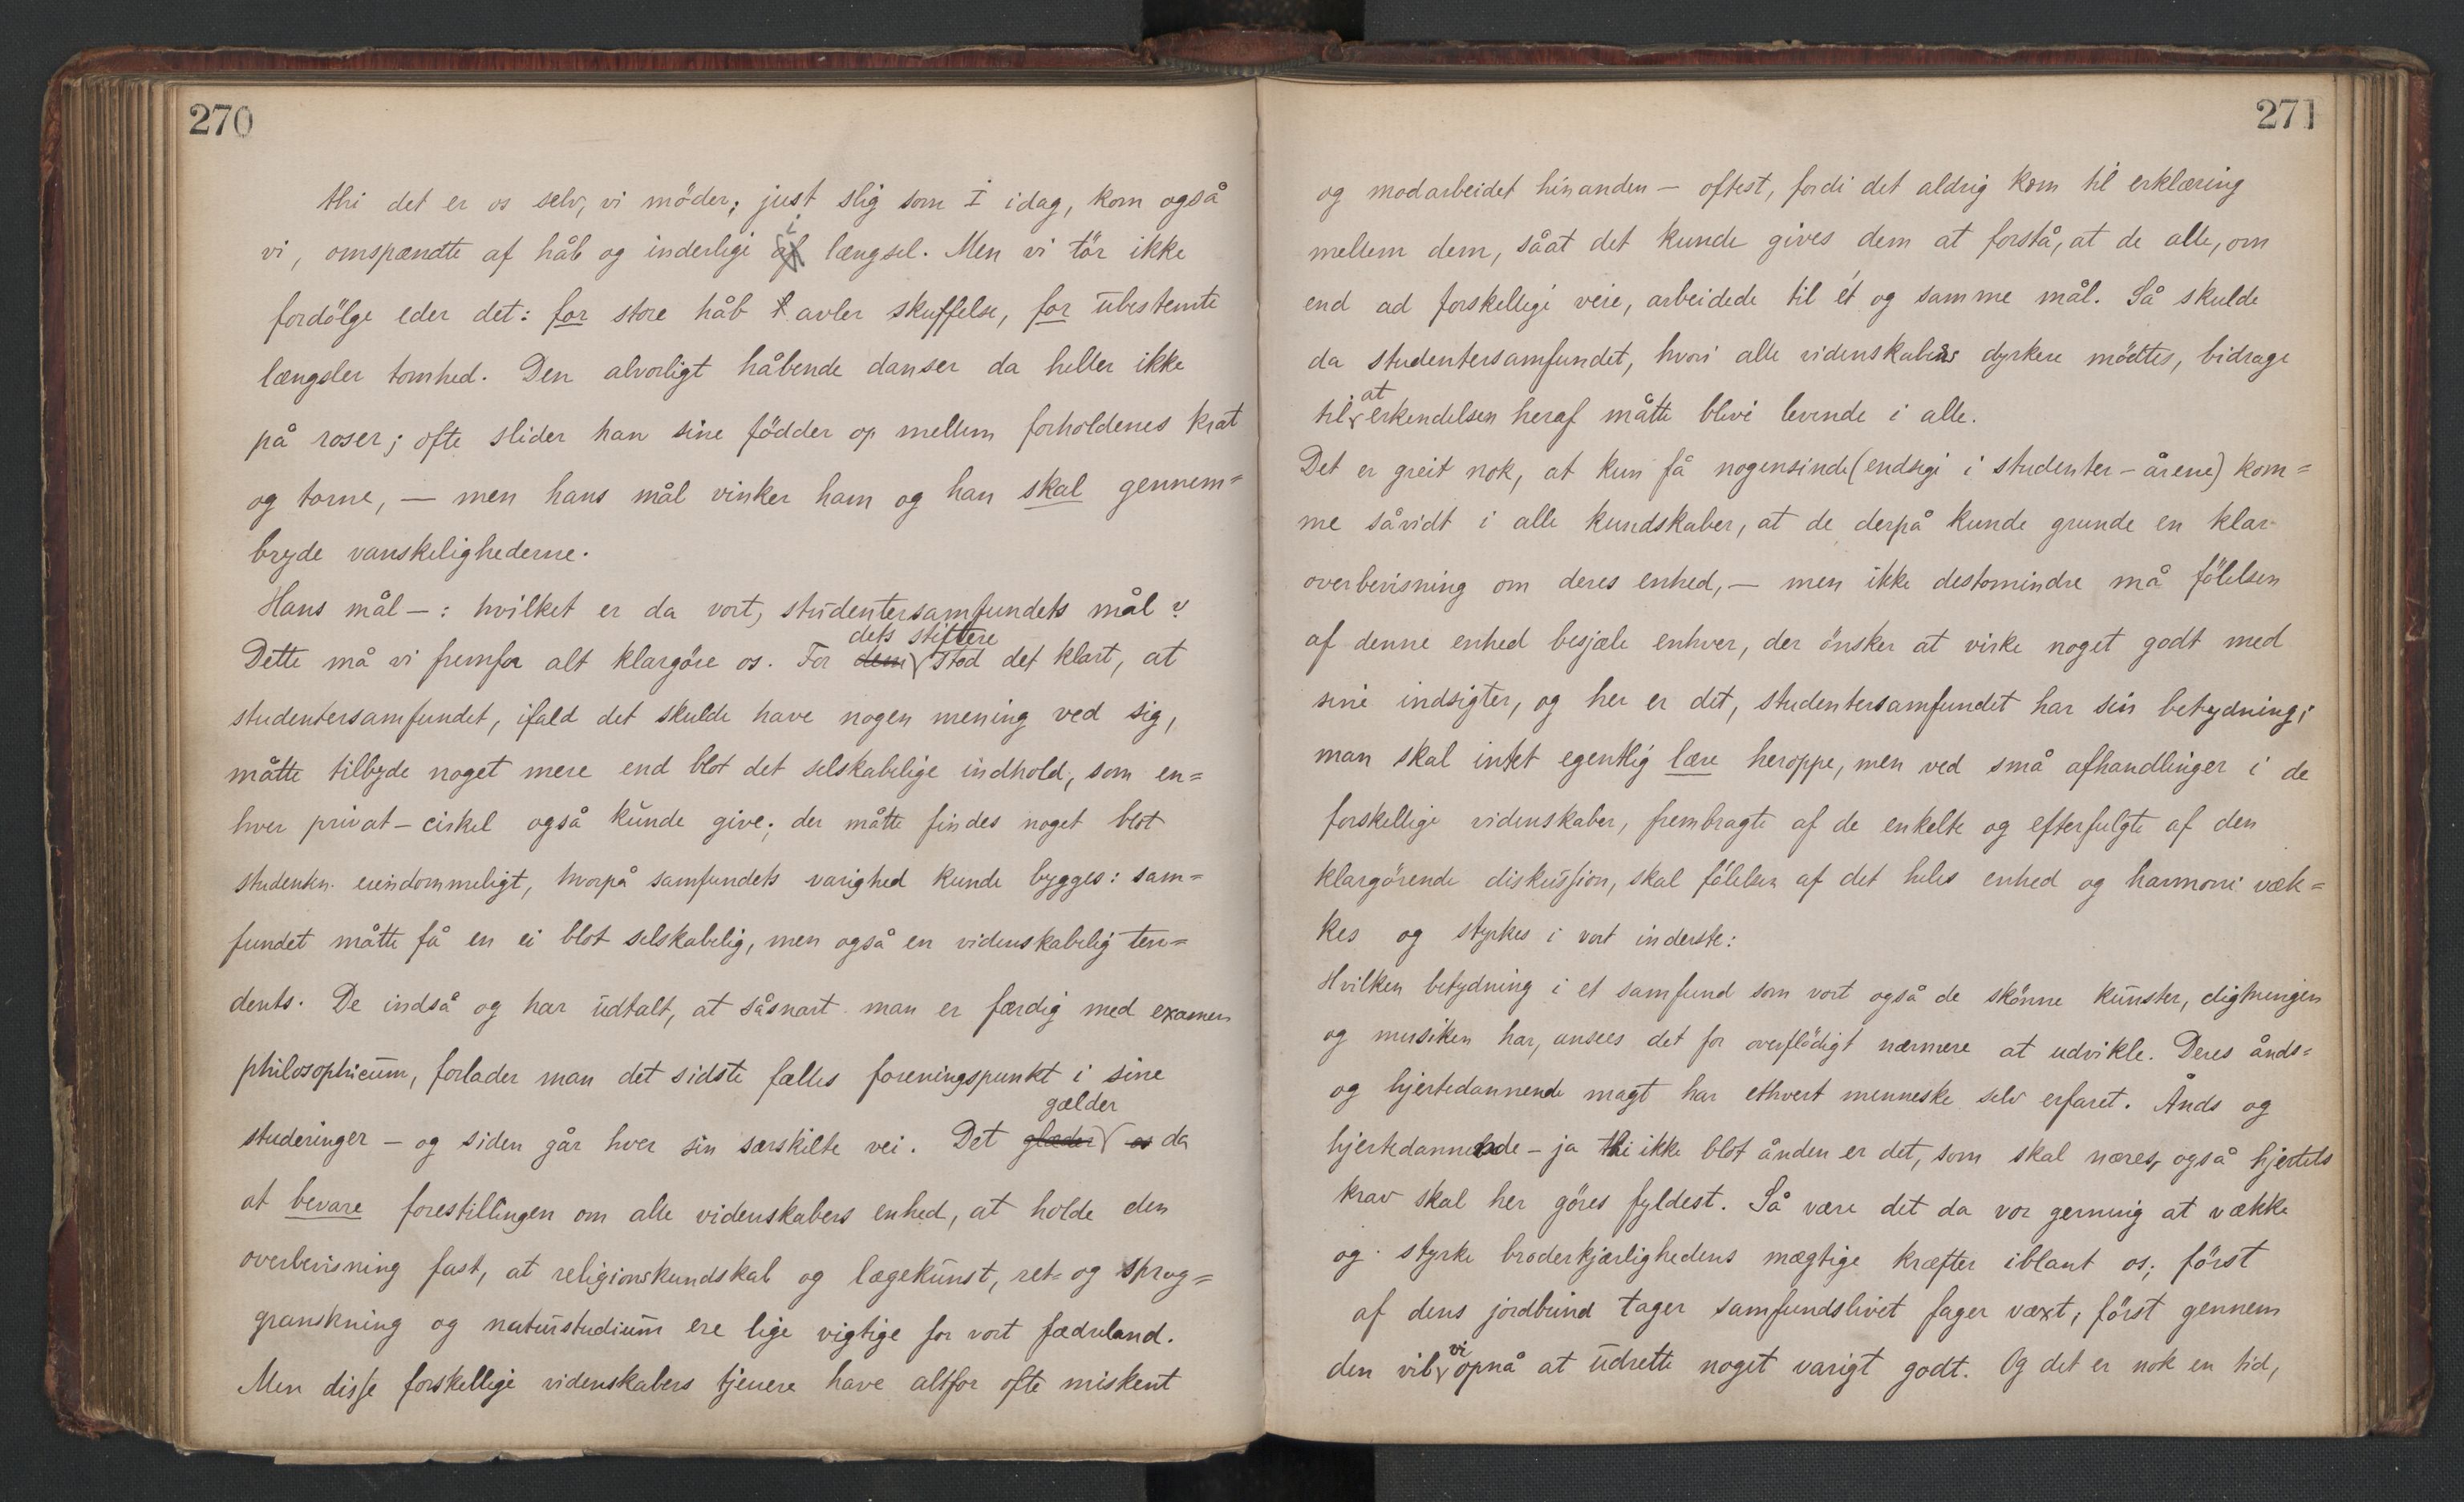 270
thi det er os selv, vi möder; just slig som I idag, kom også
vi, omspændte af håb og inderlige i længsel. Men vi tör ikke
fordölge eder det: for store håb avler skuffelse, for ubestemte
længsler tomhed. Den alvorligt håbende danser da heller ikke
på roser; ofte slider han sine födder op mellem forholdenes krat
og torne, — men hans mål vinker ham og han skal gennem=
bryde vanskelighederne.
Hans mål —: hvilket er da vort, studentersamfundets mål?
Dette må vi fremfor alt klargöre os. For dem dets stiftere stod det klart, at
studentersamfundet, ifald det skulde have nogen mening ved sig,
måtte tilbyde noget mere end blot det selskabelige indhold, som en=
hver privat-cirkel også kunde give; der måtte findes noget blot
studenten eiendommeligt, hvorpå samfundets varighed kunde bygges: sam=
fundet måtte få en ei blot selskabelig, men også en videnskabelig ten=
dents. De indså og har udtalt, at såsnart man er færdig med examen
philosophicum, forlader man det sidste fælles foreningspunkt i sine
studeringer — og siden går hver sin særskilte vei. Det glæder gælder os da
at bevare forestillingen om alle videnskabers enhed, at holde den
overbevisning fast, at religionskundskab og lægekunst, ret= og sprog=
granskning og naturstudium ere lige vigtige for vort fædreland.
Men disse forskellige videnskabers tjenere have altfor ofte miskent
271
og modarbeidet hinanden — oftest, fordi det aldrig kom til erklæring
mellem dem, såat det kunde gives dem at forstå, at de alle, om
end ad forskellige veie, arbeidede til ét og samme mål. Så skulde
da studentersamfundet, hvori alle videnskabers dyrkere mödtes, bidrage
til at erkendelsen heraf måtte blive levende i alle.
Det er greit nok, at kun få nogensinde (endsige i studenter-årene) kom=
me såvidt i alle kundskaber, at de derpå kunde grunde en klar
overbevisning om deres enhed, — men ikke destomindre må fölelsen
af denne enhed besjæle enhver, der önsker at virke noget godt med
sine indsigter, og her er det, studentersamfundet har sin betydning;
man skal intet egentlig lære heroppe, men ved små afhandlinger i de
forskellige videnskaber, frembragte af de enkelte og efterfulgte af den
klargörende diskussion, skal fölelsen af det heles enhed og harmoni væk=
kes og styrkes i vort inderste:
Hvilken betydning i et samfund som vort også de skönne kunster, digtningen
og musiken har, ansees det for overflödigt nærmere at udvikle. Deres ånds=
og hjertedannende magt har ethvert menneske selv erfaret. Ånds og
hjertedannende — ja thi ikke blot ånden er det, som skal næres, også hjertets
krav skal her göres fyldest. Så være det da vor gerning at vække
og styrke broderkjærlighedens mægtige kræfter iblant os; först
af dens jordbund tager samfundslivet fager væxt; först gennem
den vil vi opnå at udrette noget varigt godt. Og det er nok en tid,